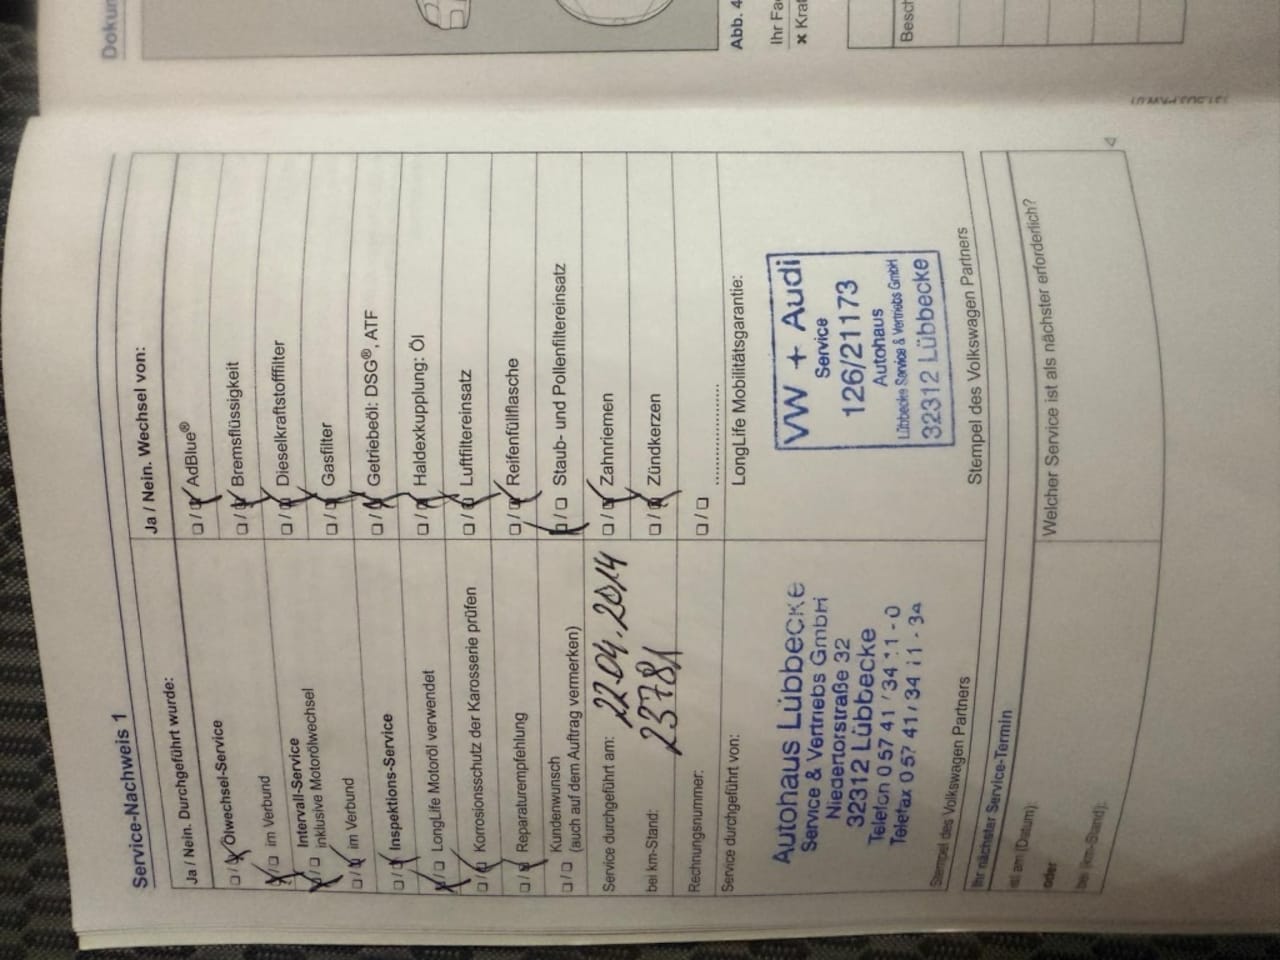 Service-Nachweis 1
Ja / Nein. Durchgeführt wurde:
Ölwechsel-Service
im Verbund
Intervall-Service
inklusive Motorölwechsel
im Verbund
Inspektions-Service
LongLife Motoröl verwendet
Korrosionsschutz der Karosserie prüfen
Reparaturempfehlung
Kundenwunsch
(auch auf dem Auftrag vermerken)
Service durchgeführt am: 22.04.2014
bei km-Stand: 23781
Rechnungsnummer:
Service durchgeführt von:
Autohaus Lübbecke
Service & Vertriebs GmbH
Niedertorstraße 32
32312 Lübbecke
Telefon 0 57 41 / 34 11 - 0
Telefax 0 57 41 / 34 11 - 34
Stempel des Volkswagen Partners
Ja / Nein. Wechsel von:
AdBlue®
Bremsflüssigkeit
Dieselkraftstofffilter
Gasfilter
Getriebeöl: DSG®, ATF
Haldexkupplung: Öl
Luftfiltereinsatz
Reifenfüllflasche
Staub- und Pollenfiltereinsatz
Zahnriemen
Zündkerzen
....................
LongLife Mobilitätsgarantie:
VW + Audi
Service
126/21173
Autohaus
Lübbecke Service & Vertriebs GmbH
32312 Lübbecke
Stempel des Volkswagen Partners
Ihr nächster Service-Termin
ist am (Datum):
oder
bei (km-Stand):
Welcher Service ist als nächster erforderlich?
Dokum
Abb. 4
Ihr Fa
× Kraf
Besch